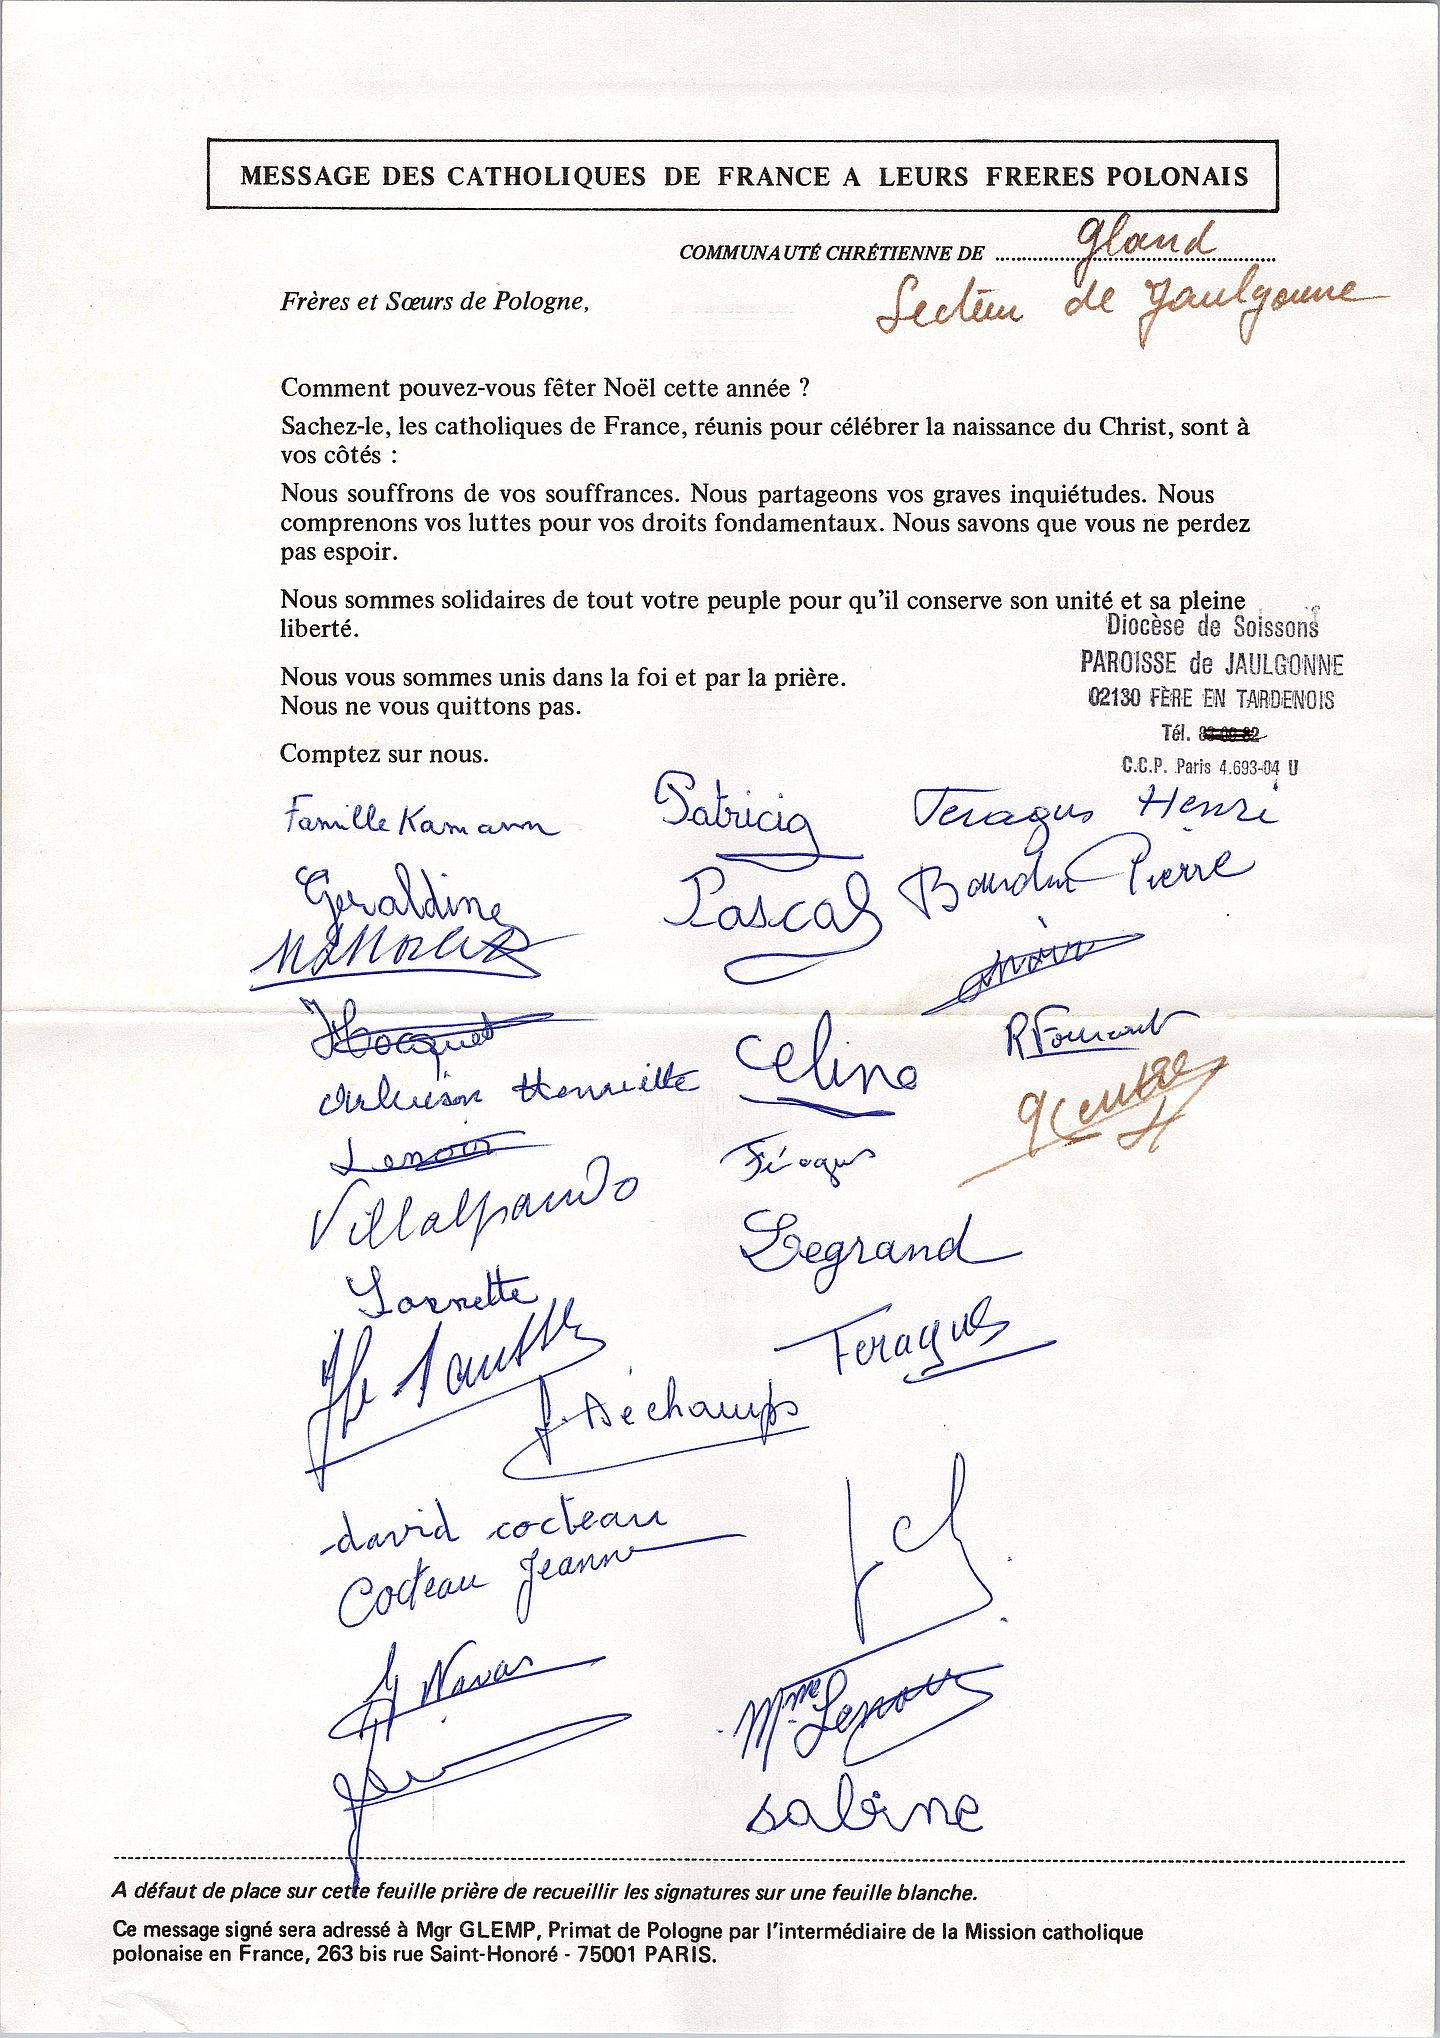 MESSAGE DES CATHOLIQUES DE FRANCE A LEURS FRERES POLONAIS
COMMUNAUTÉ CHRÉTIENNE DE Gland
Secteur de Jaulgonne
Frères et Sœurs de Pologne,
Comment pouvez-vous fêter Noël cette année ?
Sachez-le, les catholiques de France, réunis pour célébrer la naissance du Christ, sont à
vos côtés :
Nous souffrons de vos souffrances. Nous partageons vos graves inquiétudes. Nous
comprenons vos luttes pour vos droits fondamentaux. Nous savons que vous ne perdez
pas espoir.
Nous sommes solidaires de tout votre peuple pour qu'il conserve son unité et sa pleine
liberté.
Diocèse de Soissons
PAROISSE de JAULGONNE
02130 FÈRE EN TARDENOIS
Tél.
C.C.P. Paris 4.693-04 U
Nous vous sommes unis dans la foi et par la prière.
Nous ne vous quittons pas.
Comptez sur nous.
Famille Kamann
Patricia
Feragus Henri
Geraldine
Pascal
Baudin Pierre
Hocquet
Celine
Henriette
Lenoir
Villalpando
Legrand
Lornette
Feragus
J. Déchamps
david cocteau
Cocteau Jeanne
Navas
Mme Lenoir
sabine
A défaut de place sur cette feuille prière de recueillir les signatures sur une feuille blanche.
Ce message signé sera adressé à Mgr GLEMP, Primat de Pologne par l'intermédiaire de la Mission catholique
polonaise en France, 263 bis rue Saint-Honoré - 75001 PARIS.